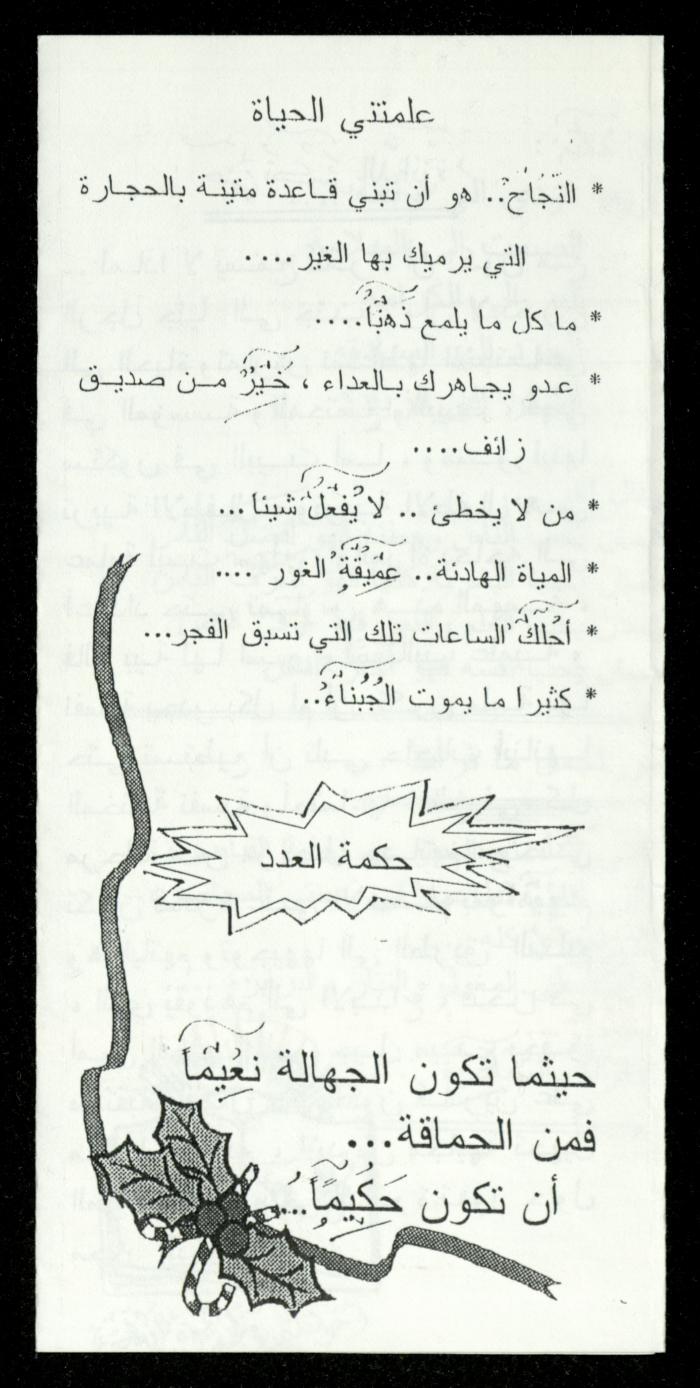 علمتني الحياة
* النَّجَاحُ.. هو أن تبني قاعدة متينة بالحجارة
التي يرميك بها الغير ....
* ما كل ما يلمع ذَهَبًا....
* عدو يجاهرك بالعداء ، خَيْرٌ من صديق
زائف....
* من لا يخطئ .. لا يَفْعَلُ شيئا ...
* المياة الهادئة.. عَمِيقَةُ الغور ....
* أَحْلَكُ الساعات تلك التي تسبق الفجر...
* كثيرا ما يموت الجُبَنَاءُ..
حكمة العدد
حيثما تكون الجهالة نَعِيماً
فمن الحماقة...
أن تكون حَكِيمًا...